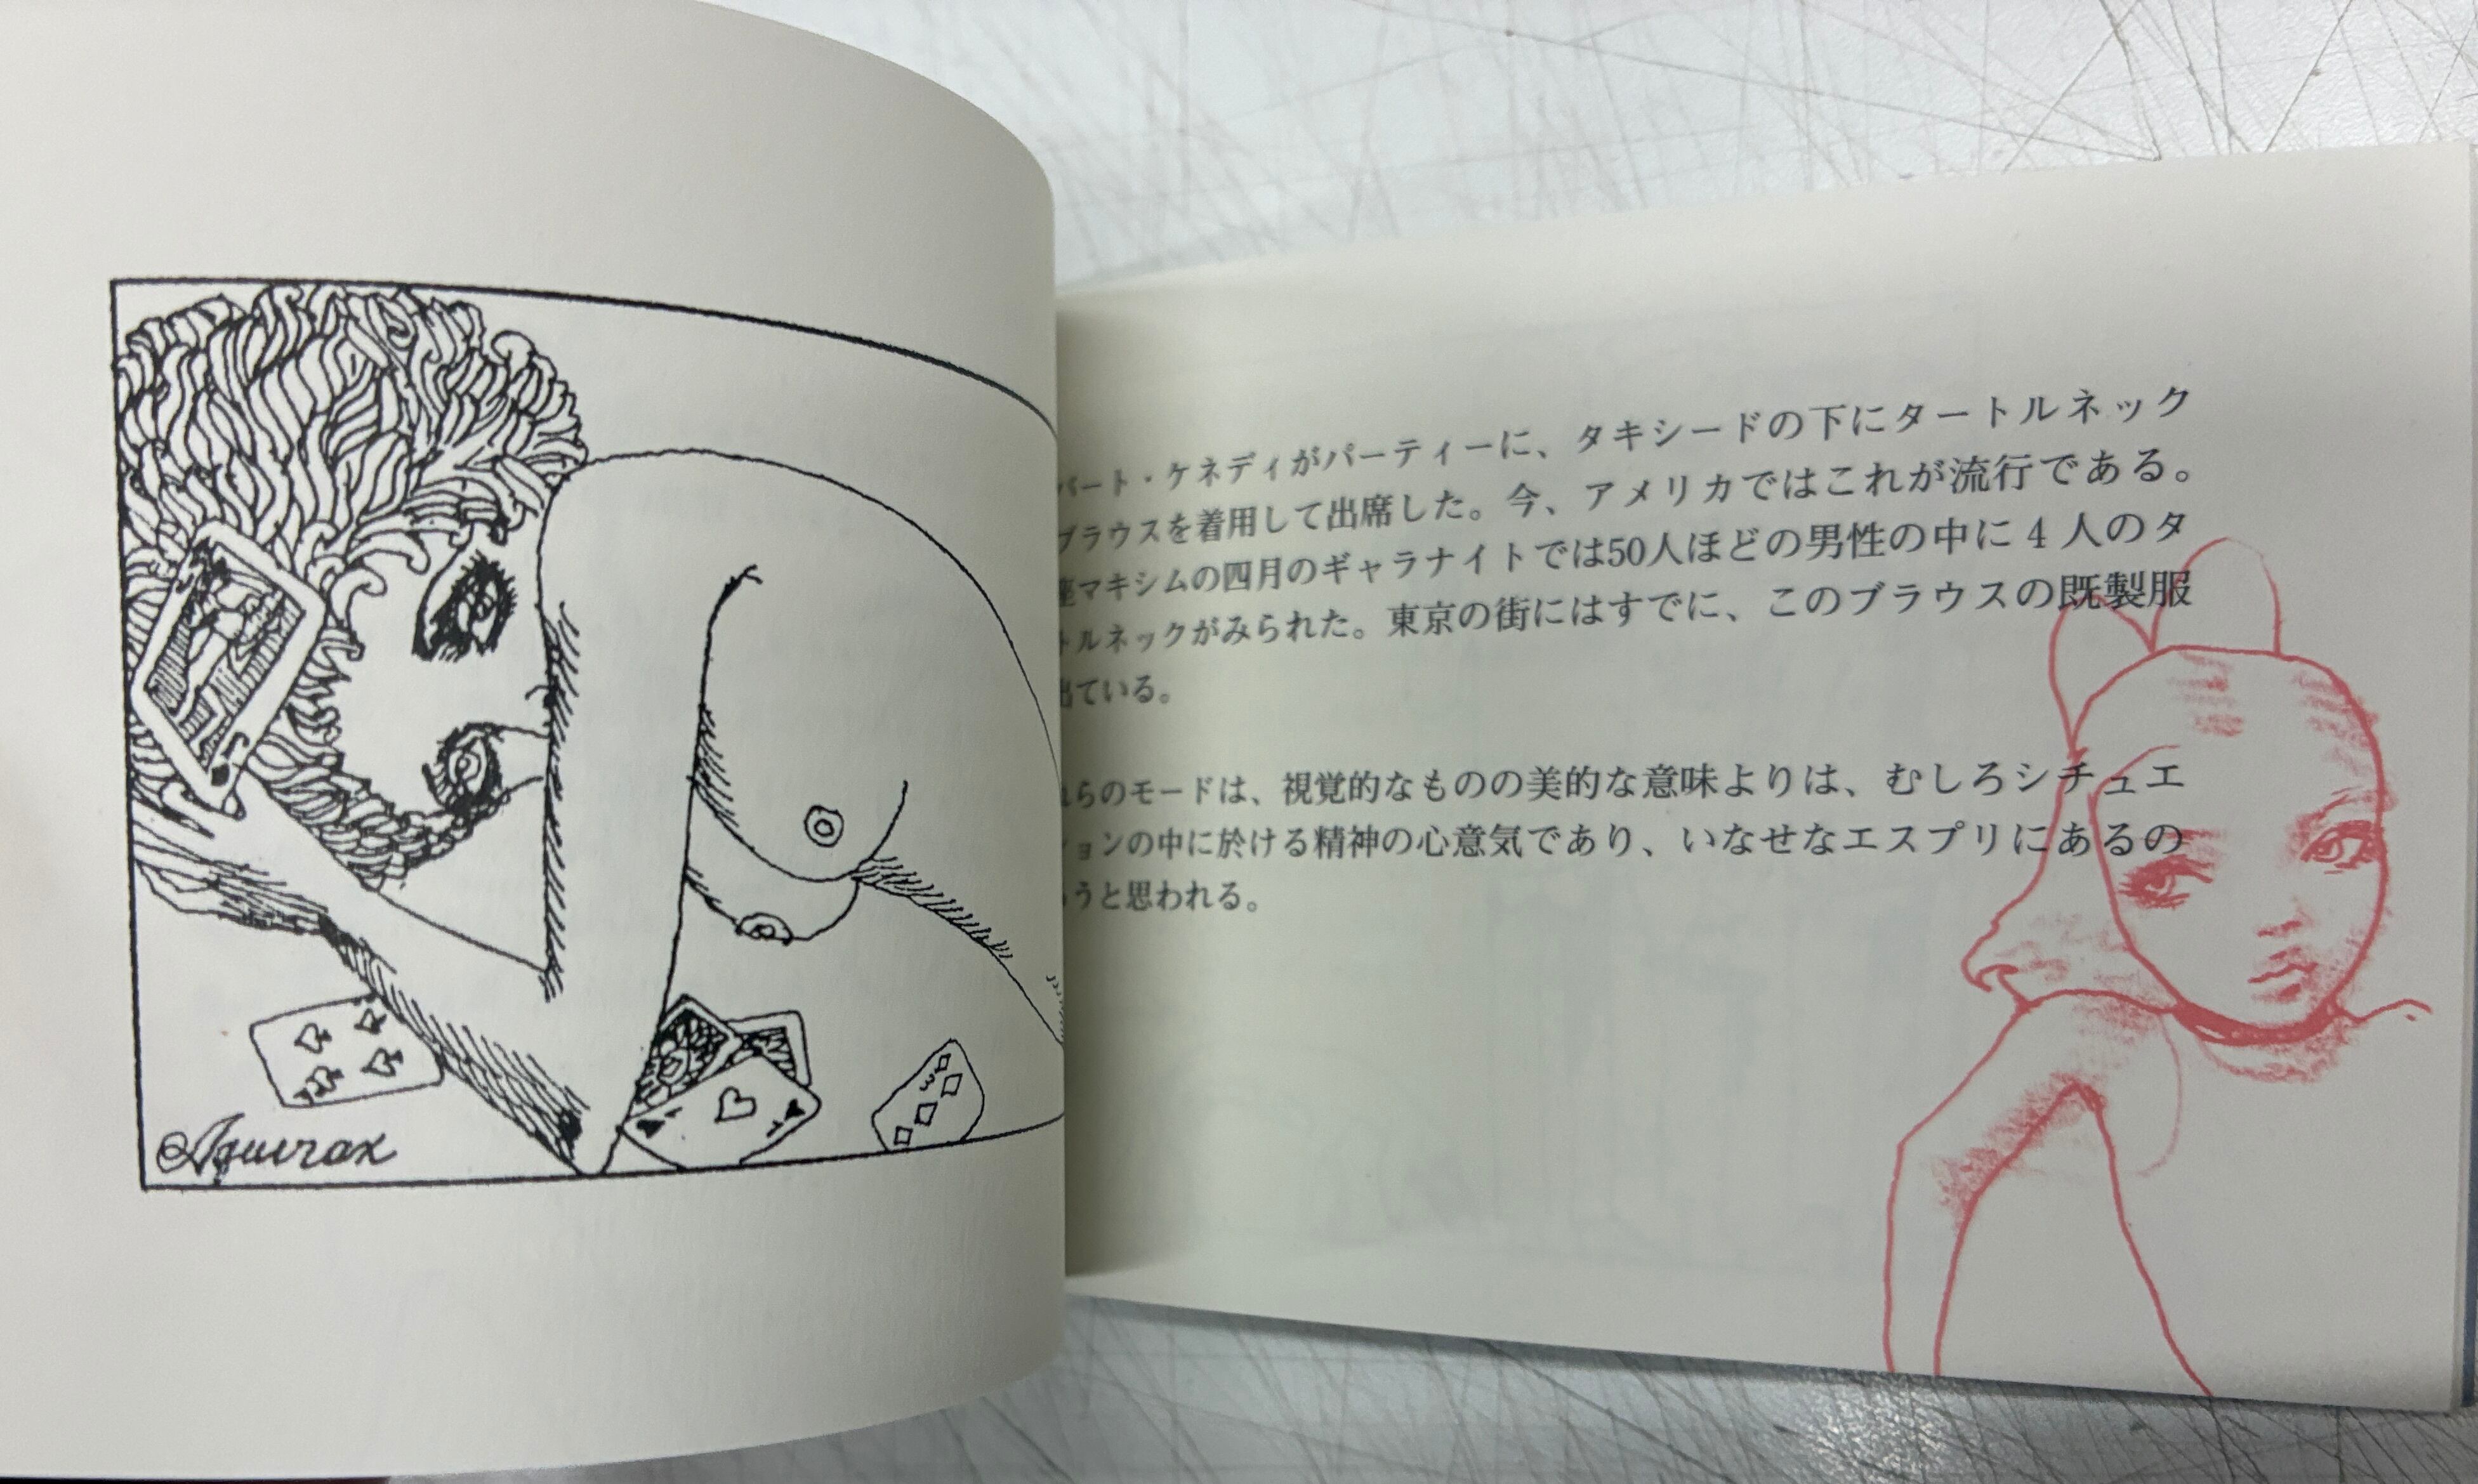 Aquirax
バート・ケネディがパーティーに、タキシードの下にタートルネック
ブラウスを着用して出席した。今、アメリカではこれが流行である。
座マキシムの四月のギャラナイトでは50人ほどの男性の中に4人のタ
トルネックがみられた。東京の街にはすでに、このブラウスの既製服
出ている。
らのモードは、視覚的なものの美的な意味よりは、むしろシチュエ
ョンの中に於ける精神の心意気であり、いなせなエスプリにあるの
うと思われる。